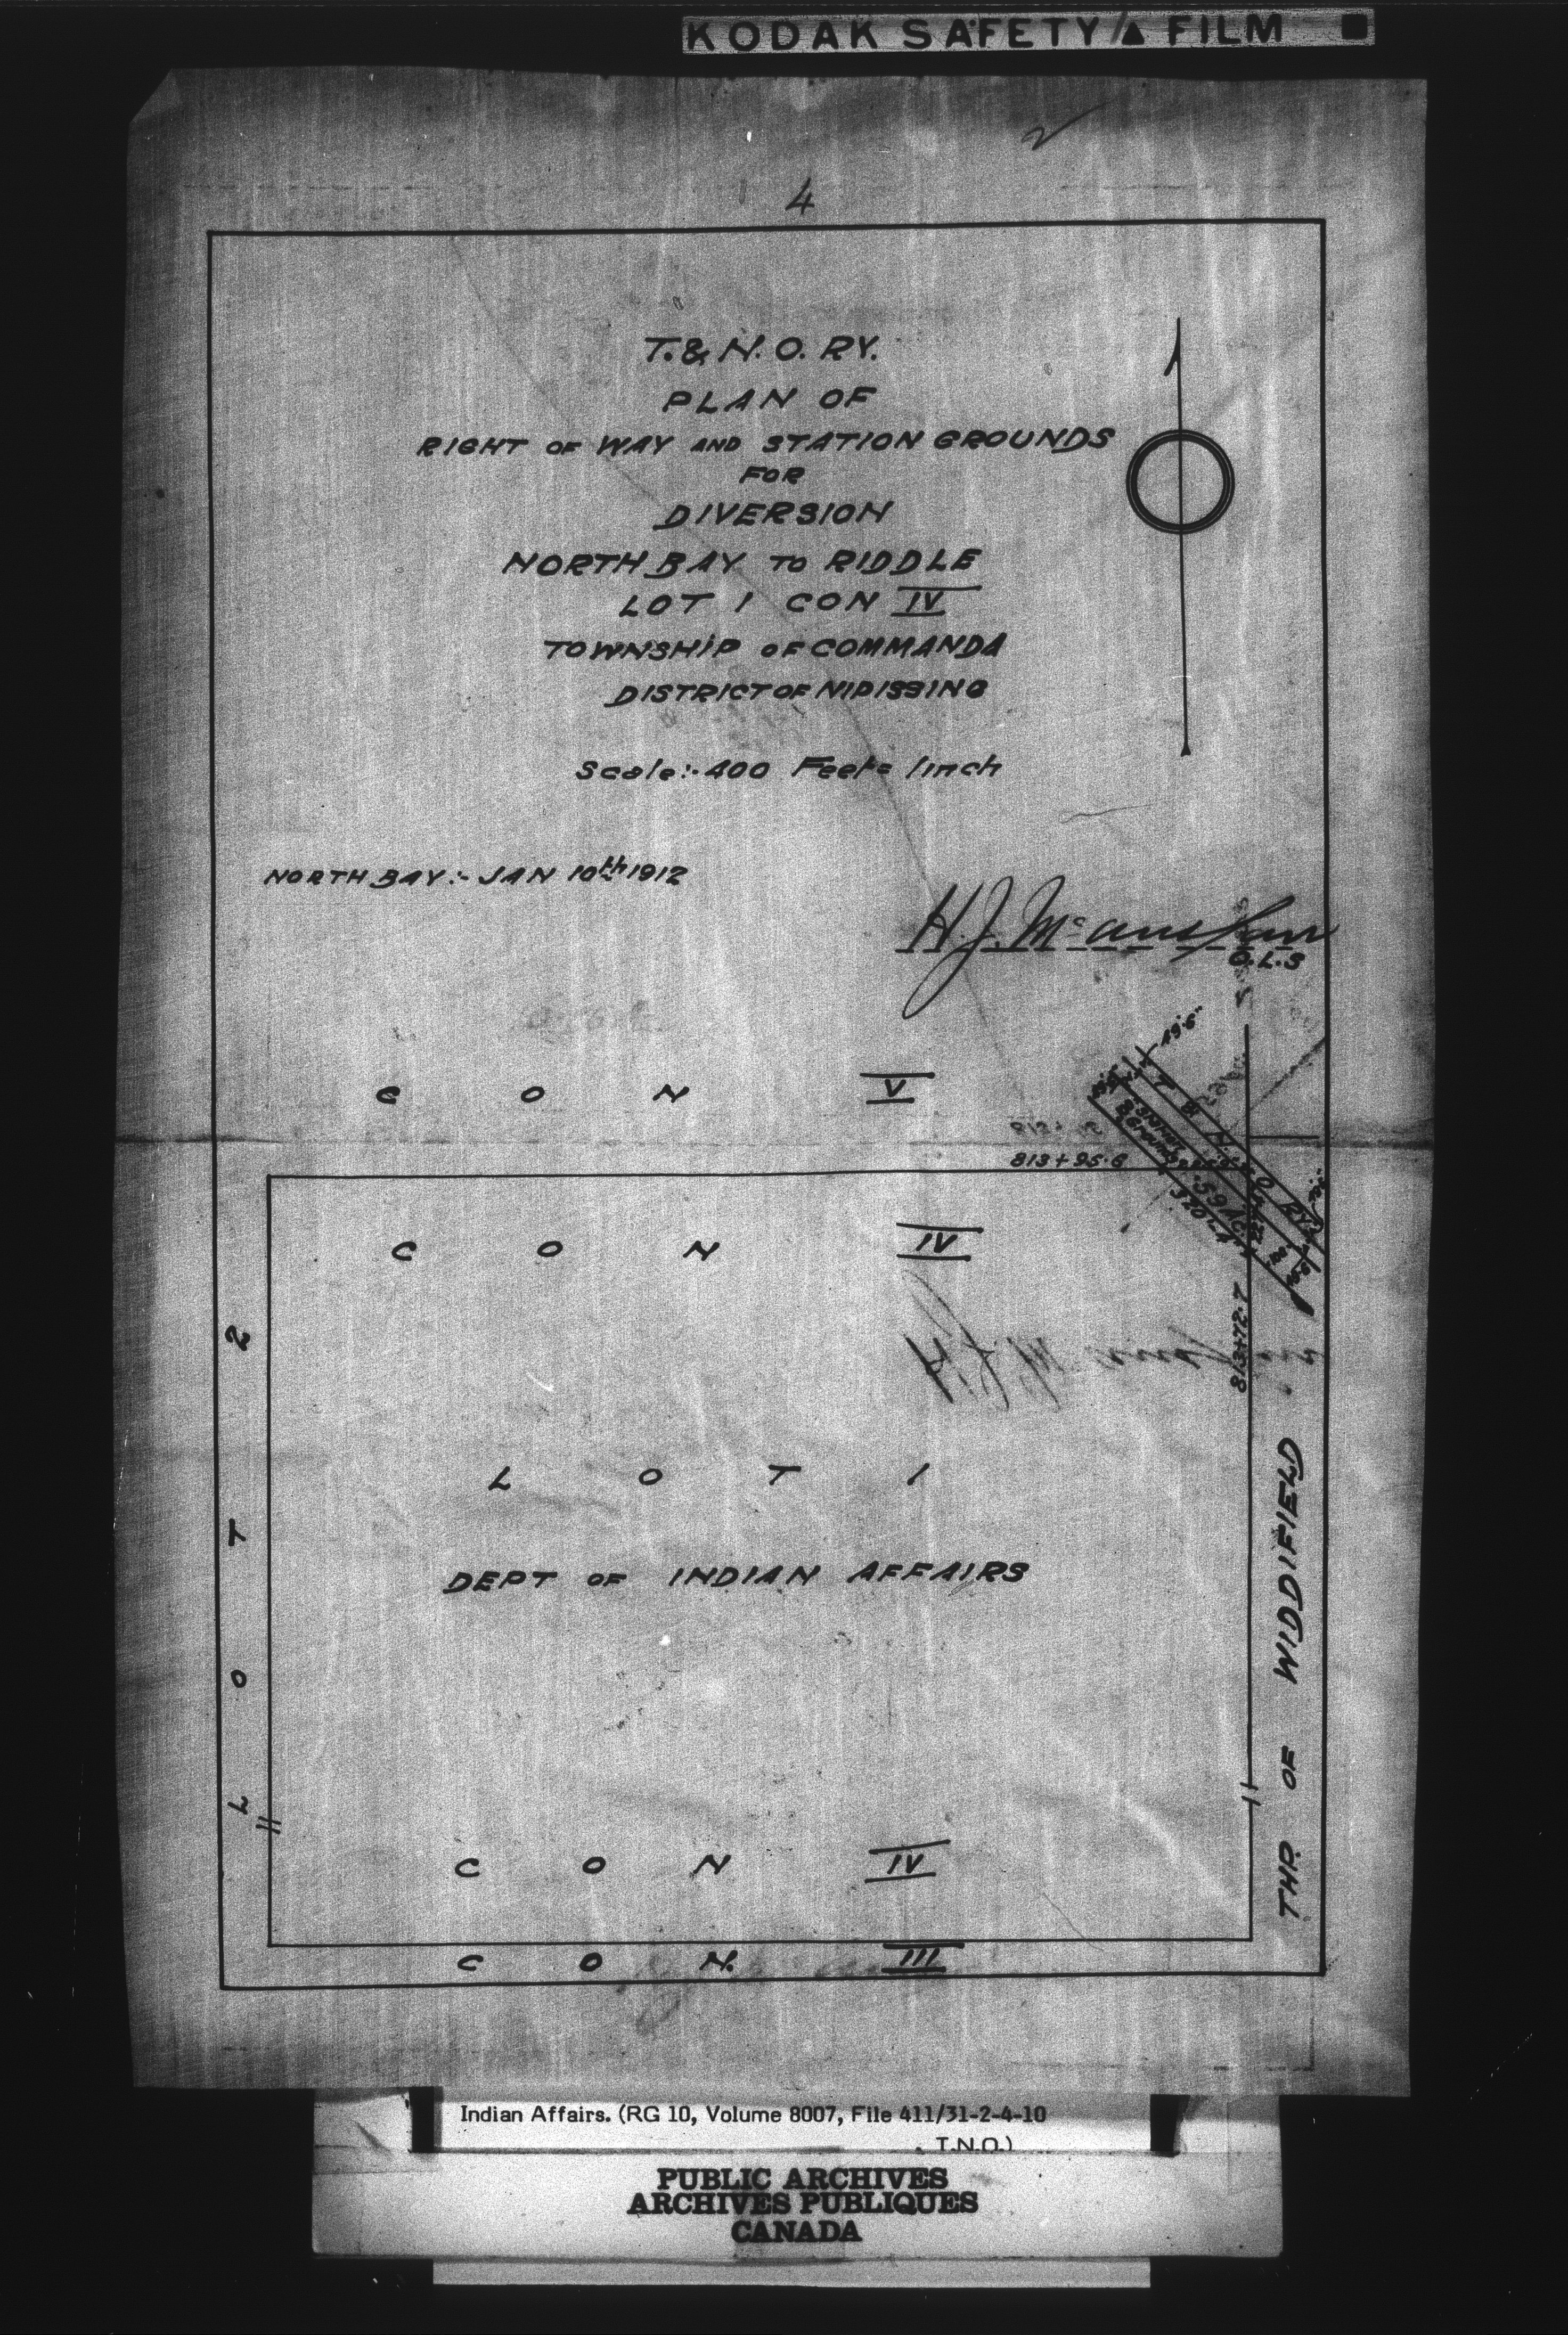 KODAK SAFETY FILM
2
4
T. & N. O. RY.
PLAN OF
RIGHT OF WAY AND STATION GROUNDS
FOR
DIVERSION
NORTH BAY TO RIDDLE
LOT 1 CON IV
TOWNSHIP OF COMMANDA
DISTRICT OF NIPISSING
Scale:- 400 Feet = 1 inch
NORTH BAY:- JAN 10th 1912
H.J. Mc
O.L.S
49.5"
C O N V
T. & N. O. RY.
813 + 95.6
.59 AC.
C O N IV
813+72.7
LOT 2
L O T 1
DEPT OF INDIAN AFFAIRS
TWP. OF WIDDIFIELD
C O N IV
C O N. III
Indian Affairs. (RG 10, Volume 8007, File 411/31-2-4-10
T.N.O.)
PUBLIC ARCHIVES
ARCHIVES PUBLIQUES
CANADA